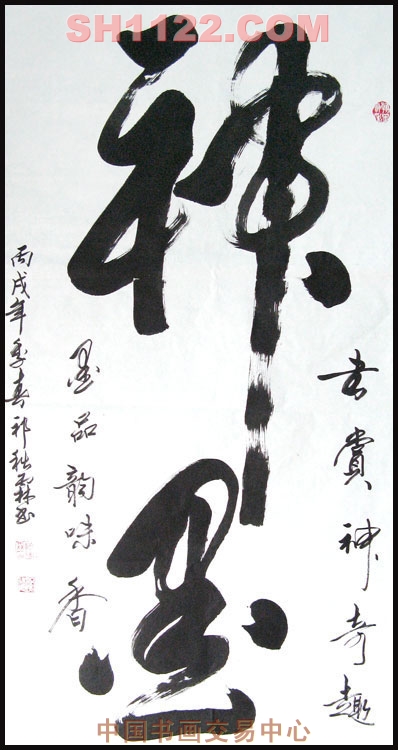 SH1122.COM
神墨
书赏神奇趣
墨品韻味香
丙戌年季春祁秋霖书
中国书画交易中心